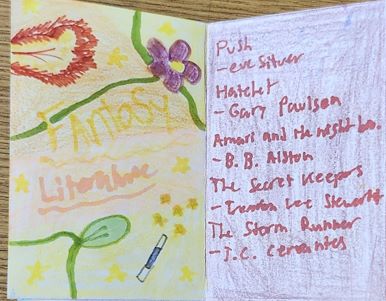 Fantasy
Literature
Push
- eve Silver
Hatchet
- Gary Paulsen
Amari and the night bro.
- B. B. Alston
The Secret Keepers
- Trenton Lee Stewart
The Storm Runner
- J.C. Cervantes